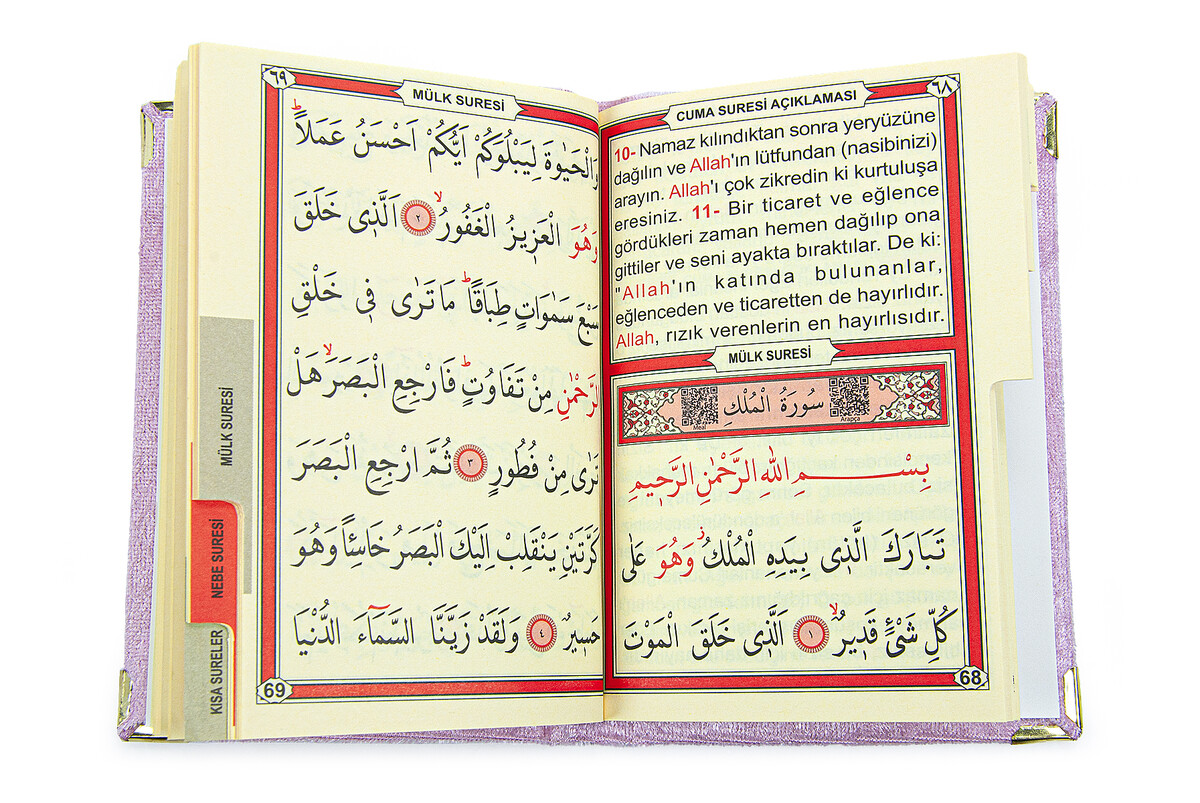 ٦٨
CUMA SURESİ AÇIKLAMASI
10- Namaz kılındıktan sonra yeryüzüne
dağılın ve Allah'ın lütfundan (nasibinizi)
arayın. Allah'ı çok zikredin ki kurtuluşa
eresiniz. 11- Bir ticaret ve eğlence
gördükleri zaman hemen dağılıp ona
gittiler ve seni ayakta bıraktılar. De ki:
"Allah'ın katında bulunanlar,
eğlenceden ve ticaretten de hayırlıdır.
Allah, rızık verenlerin en hayırlısıdır.
MÜLK SURESİ
سُورَةُ الْمُلْكِ
Meal
Arapça
بِسْــــــمِ اللّٰهِ الرَّحْمٰنِ الرَّحٖيمِ
تَبَارَكَ الَّذٖى بِيَدِهِ الْمُلْكُ ز وَهُوَ عَلٰى
كُلِّ شَىْءٍ قَدٖيرٌ ۙ ١ اَلَّذٖى خَلَقَ الْمَوْتَ
68
٦٩
MÜLK SURESİ
وَالْحَيٰوةَ لِيَبْلُوَكُمْ اَيُّكُمْ اَحْسَنُ عَمَلاً ؕ
وَهُوَ الْعَزٖيزُ الْغَفُورُ ۙ ٢ اَلَّذٖى خَلَقَ
سَبْعَ سَمٰوَاتٍ طِبَاقًا ؕ مَا تَرٰى فٖى خَلْقِ
الرَّحْمٰنِ مِنْ تَفَاوُتٍ ؕ فَارْجِعِ الْبَصَرَ ۙ هَلْ
تَرٰى مِنْ فُطُورٍ ٣ ثُمَّ ارْجِعِ الْبَصَرَ
كَرَّتَيْنِ يَنْقَلِبْ اِلَيْكَ الْبَصَرُ خَاسِئًا وَهُوَ
حَسٖيرٌ ٤ وَلَقَدْ زَيَّنَّا السَّمَٓاءَ الدُّنْيَا
69
MÜLK SURESİ
NEBE SURESİ
KISA SURELER